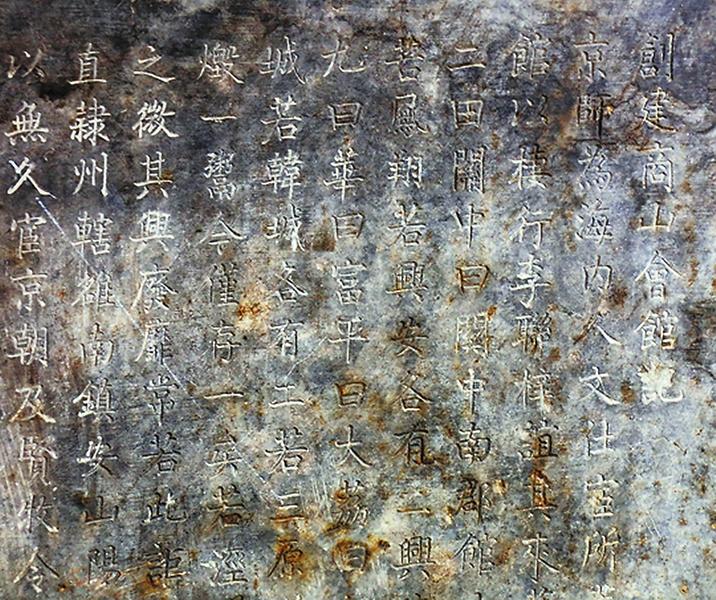 創建商山會館記
京師為海內人文仕宦所
館以棲行李聯梓誼其來
二曰關中曰關中南郡館
若鳳翔若興安各有二興
九曰華曰富平曰大荔曰
城若韓城各有二若三原
燬一鬻令僅存一矣若涇
之微其興廢靡常若此詎
直隸州轄雒南鎮安山陽
以無久宦京朝及賢牧令